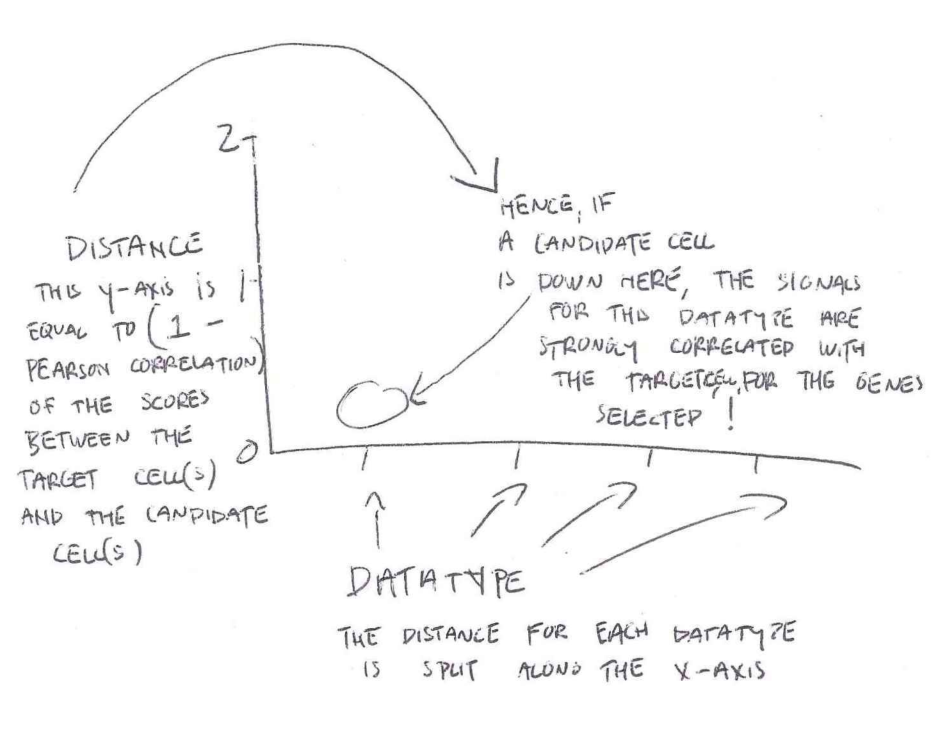 2
1
0
DISTANCE
THIS Y-AXIS IS
EQUAL TO (1 -
PEARSON CORRELATION)
OF THE SCORES
BETWEEN THE
TARGET CELL(S)
AND THE CANDIDATE
CELL(S)
HENCE, IF
A CANDIDATE CELL
IS DOWN HERE, THE SIGNALS
FOR THIS DATATYPE ARE
STRONGLY CORRELATED WITH
THE TARGET CELL, FOR THE GENES
SELECTED !
DATATYPE
THE DISTANCE FOR EACH DATATYPE
IS SPLIT ALONG THE X-AXIS